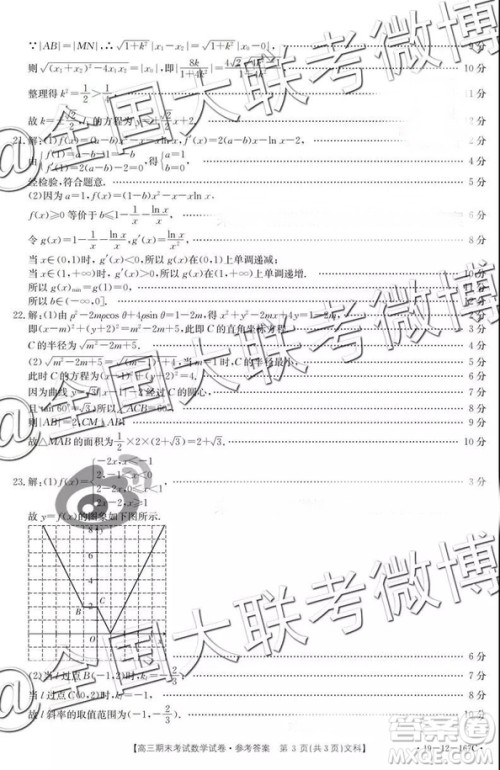 ∵|AB|=|MN|,∴√(1+k²)|x₁-x₂|=√(1+k²)|x₀-0|, 9分
则√((x₁+x₂)²-4x₁x₂)=|x₀|,即|8k/(1+4k²)|= 10分
整理得k²=1/2> 11分
故k=±√2/2,l的方程为y=±√2/2x+2. 12分
21.解:(1)f(x)=(a-b)x²-x-xlnx,f′(x)=2(a-b)x-lnx-2, 2分
由{f(1)=a-b-1=0 f′(1)=2(a-b)-2=0,得{a=1 b=0 4分
经检验,符合题意. 5分
(2)因为a=1,f(x)=(1-b)x²-x-xlnx.
f(x)≥0等价于b≤1-1/x-lnx/x, 6分
令g(x)=1-1/x-lnx/x,g′(x)=lnx/x², 8分
当x∈(0,1)时,g′(x)<0,所以g(x)在(0,1)上单调递减;
当x∈(1,+∞)时,g′(x)>0,所以g(x)在(1,+∞)上单调递增. 10分
所以g(x)min=g(1)=0, 11分
所以b∈(-∞,0]. 12分
22.解:(1)由ρ²-2mρcosθ+4ρsinθ=1-2m,得x²+y²-2mx+4y=1-2m, 2分
即(x-m)²+(y+2)²=m²-2m+5,此即C的直角坐标方程. 4分
C的半径为√(m²-2m+5). 5分
(2)√(m²-2m+5)=√((m-1)²+4),当m=1时,C的半径最小, 6分
此时C的方程为(x-1)²+(y+2)²=4. 7分
因为曲线y=√3|x-1|-2经过C的圆心,
且tan60°=√3,所以∠ACB=60°.
则|AB|=2,CM⊥AB. 8分
故△MAB的面积为1/2×2×(2+√3)=2+√3. 10分
23.解:(1)f(x)={-2x,x<-1 2,-1≤x≤0 2-2x,0<x<1 2x-2,x≥1 3分
故y=f(x)的图象如下图所示.
y
8
6
4
2
O
x
5分
(2)当l过点B(-1,2)时,k=-2/3; 7分
当l过点C(0,2)时,k=-1. 8分
故l斜率的取值范围为 10分
【高三期末考试数学试卷·参考答案 第3页(共3页)文科】
·19-12-167C·
@全国大联考微博
@全国大联考微博